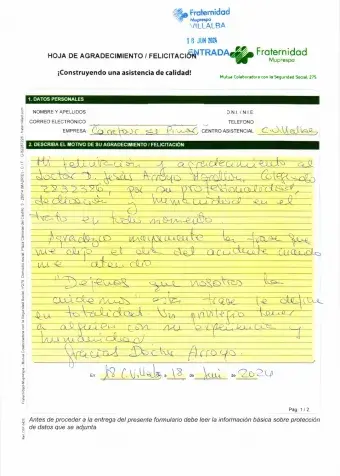 Fraternidad
Muprespa
VILLALBA
18 JUN 2024
ENTRADA
Fraternidad
Muprespa
HOJA DE AGRADECIMIENTO / FELICITACIÓN
¡Construyendo una asistencia de calidad!
Mutua Colaboradora con la Seguridad Social, 275
1. DATOS PERSONALES
NOMBRE Y APELLIDOS
D N I / N I E
CORREO ELECTRÓNICO
TELEFONO
EMPRESA Carrefour el Pinar CENTRO ASISTENCIAL C. Villalba
2. DESCRIBA EL MOTIVO DE SU AGRADECIMIENTO / FELICITACIÓN
Mi felicitación y agradecimiento al
doctor D. Jesús Arroyo Colegiado
por su profesionalidad,
dedicación y humanidad en el
trato en todo momento
Agradezco la frase que
me dijo el día del accidente cuando
me atendió
"Dejenos que nosotros la
cuidemos" esta frase le define
en totalidad Un privilegio tener
a alguien con su experiencia y
humanidad
Gracias Doctor Arroyo.
En C. Villalba a 18 de Juni de 2024
Pág. 1 / 2
Antes de proceder a la entrega del presente formulario debe leer la información básica sobre protección
de datos que se adjunta